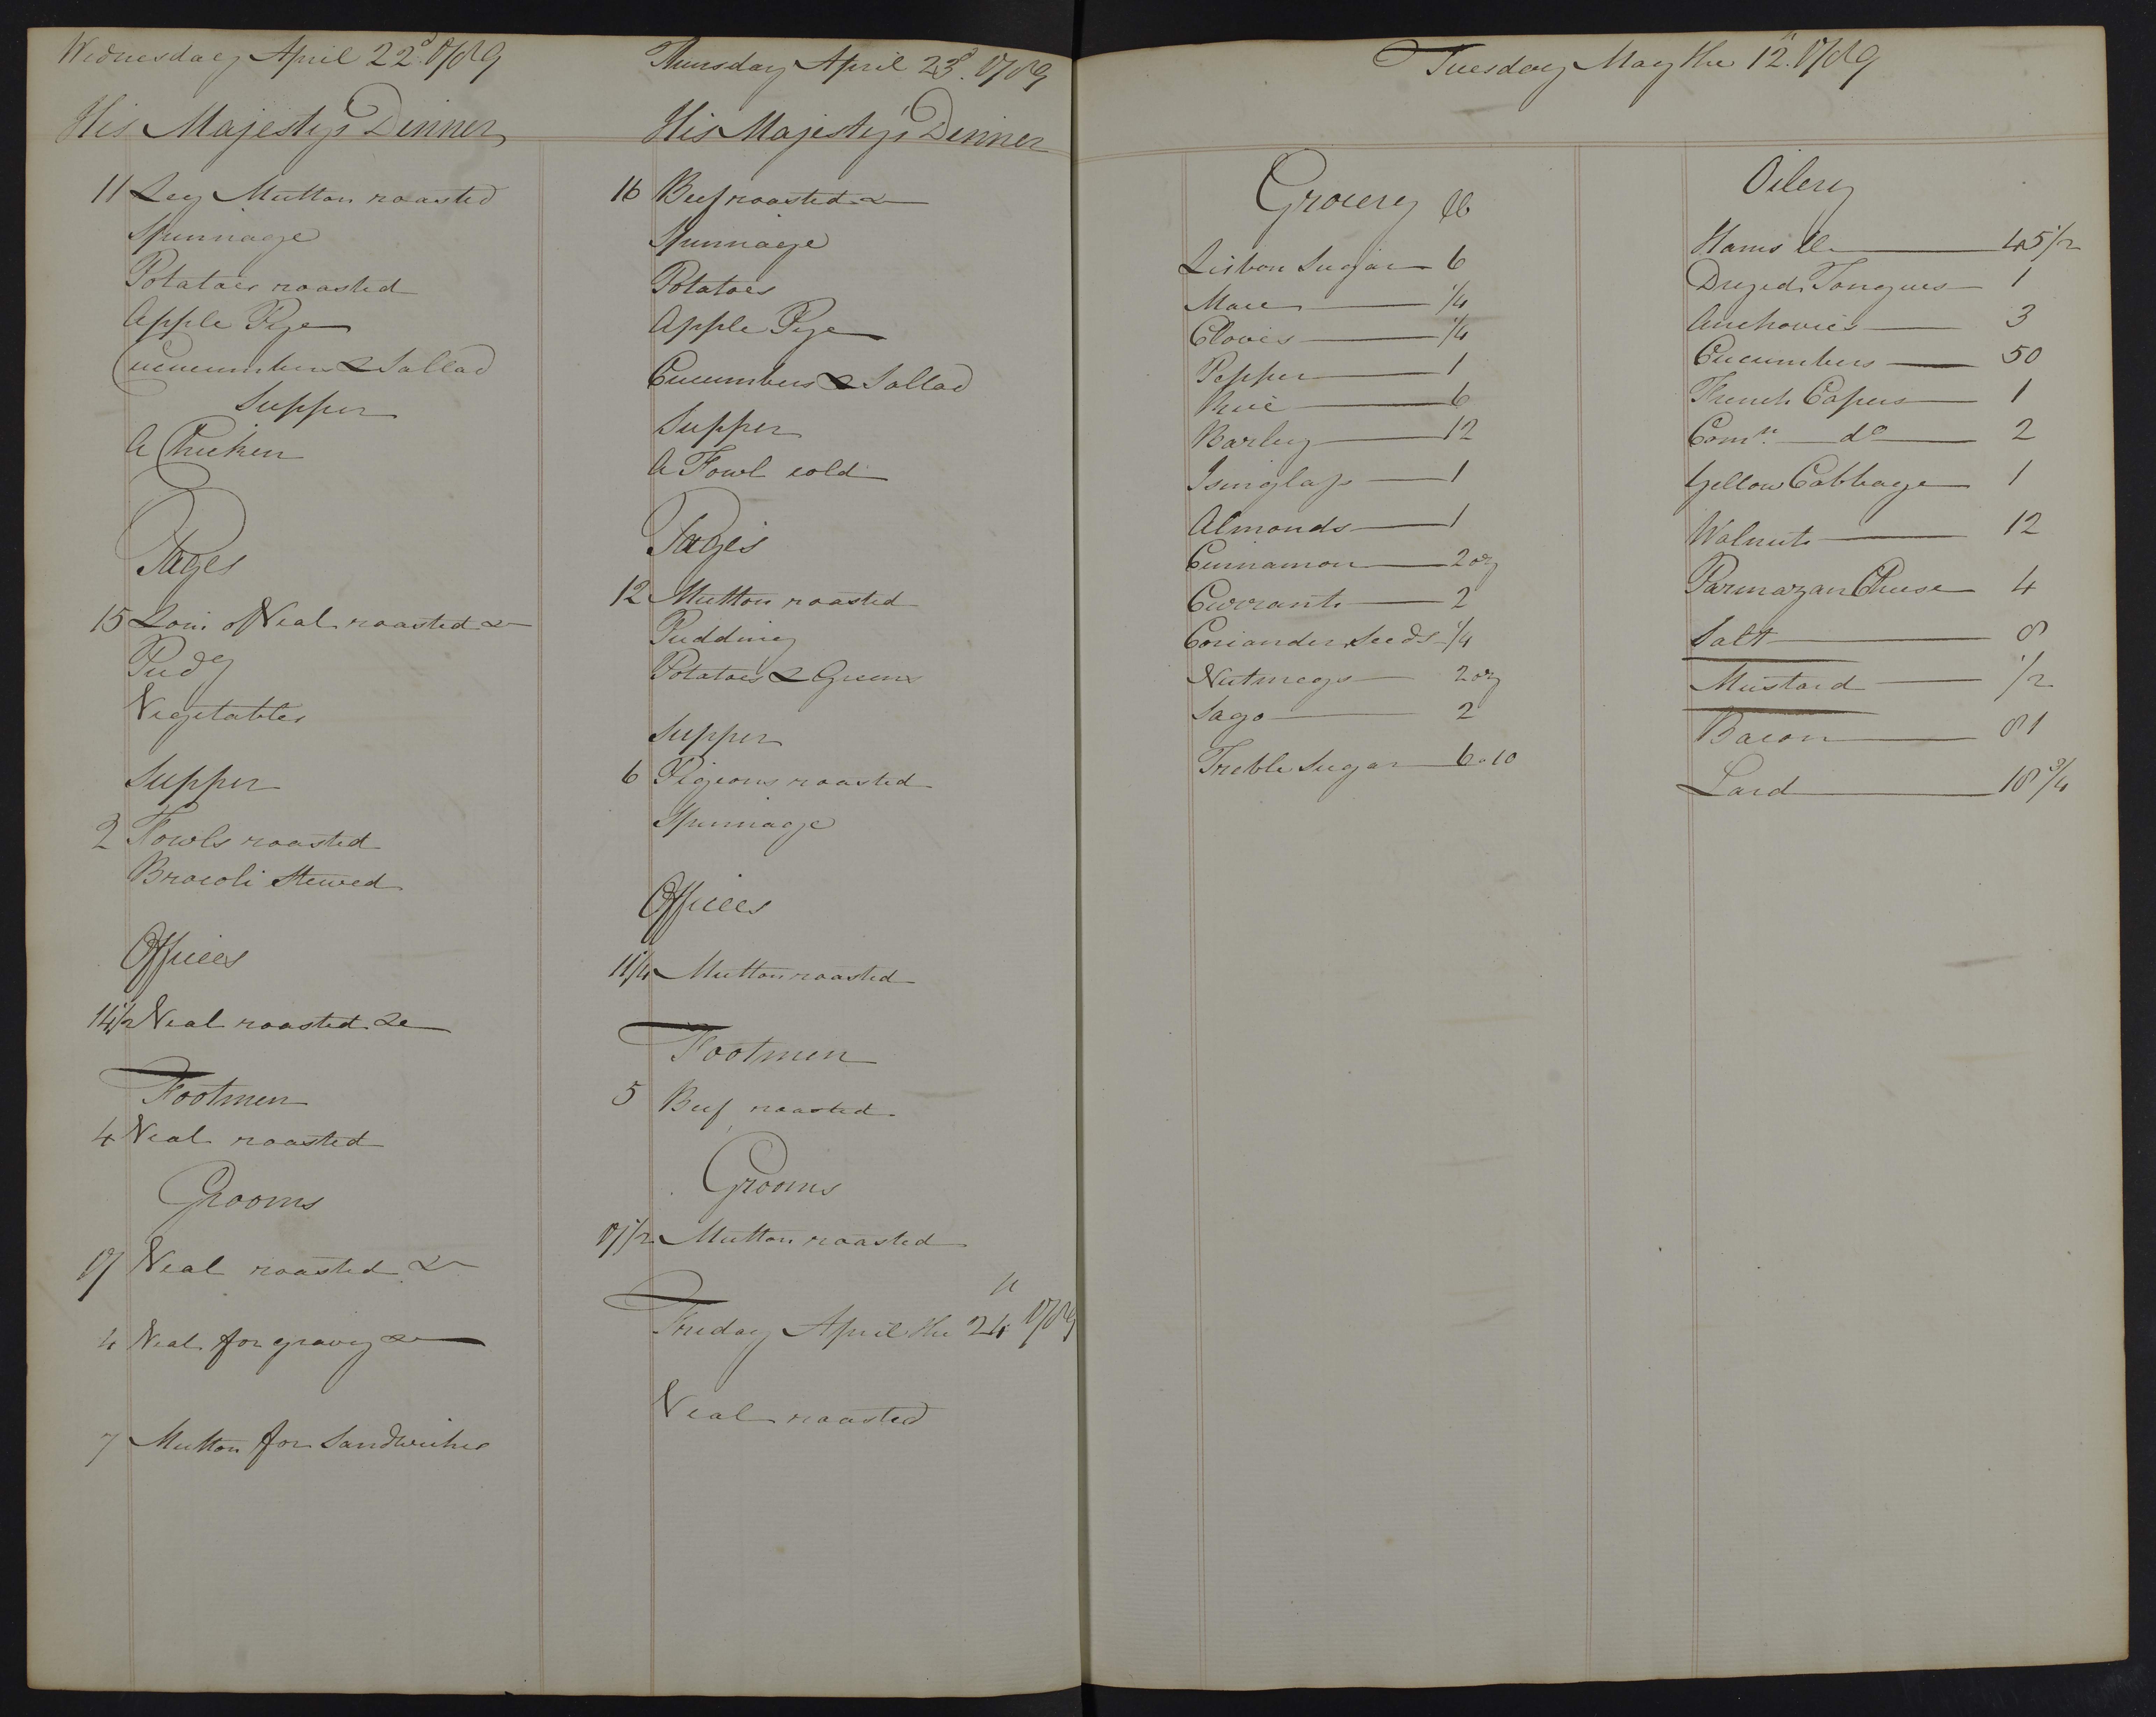 Wednesday April 22d. 1789
His Majesty's Dinner
11 Leg Mutton roasted
Spunnage
Potatoes roasted
Apple Pye
Cucumbers & Sallad
Supper
A Chicken
Pages
15 Loin of Veal roasted &
Pudg
Vegetables
Supper
2 Fowls roasted
Brocoli Stewed
Offices
14 1/2 Veal roasted &c
Footmen
4 Veal roasted
Grooms
17 Veal roasted &
4 Veal for gravy &
7 Mutton for Sandwiches
Thursday April 23d. 1789
His Majesty's Dinner
16 Beef roasted &
Spunnage
Potatoes
Apple Pye
Cucumbers & Sallad
Supper
A Fowl cold
Pages
12 Mutton roasted
Pudding
Potatoes & Greens
Supper
6 Pigeons roasted
Spunnage
Offices
11 1/4 Mutton roasted
Footmen
5 Beef roasted
Grooms
17 1/2 Mutton roasted
Friday April the 24th 1789
Veal roasted
Tuesday May the 12th. 1789
Grocery lb
Lisbon Sugar 6
Mace 1/4
Cloves 1/4
Pepper 1
Rice 6
Barley 12
Isinglass 1
Almonds 1
Cinnamon 2 oz
Currants 2
Coriander Seeds 1/4
Nutmegs 2 oz
Sago 2
Treble Sugar 6.10
Oilery
Hams lb 45 1/2
Dryed Tongues 1
Anchovies 3
Cucumbers 50
French Capers 1
Comn. do 2
Yellow Cabbage 1
Walnuts 12
Parmazan Cheese 4
Salt 8
Mustard 1/2
Bacon 81
Lard 18 3/4